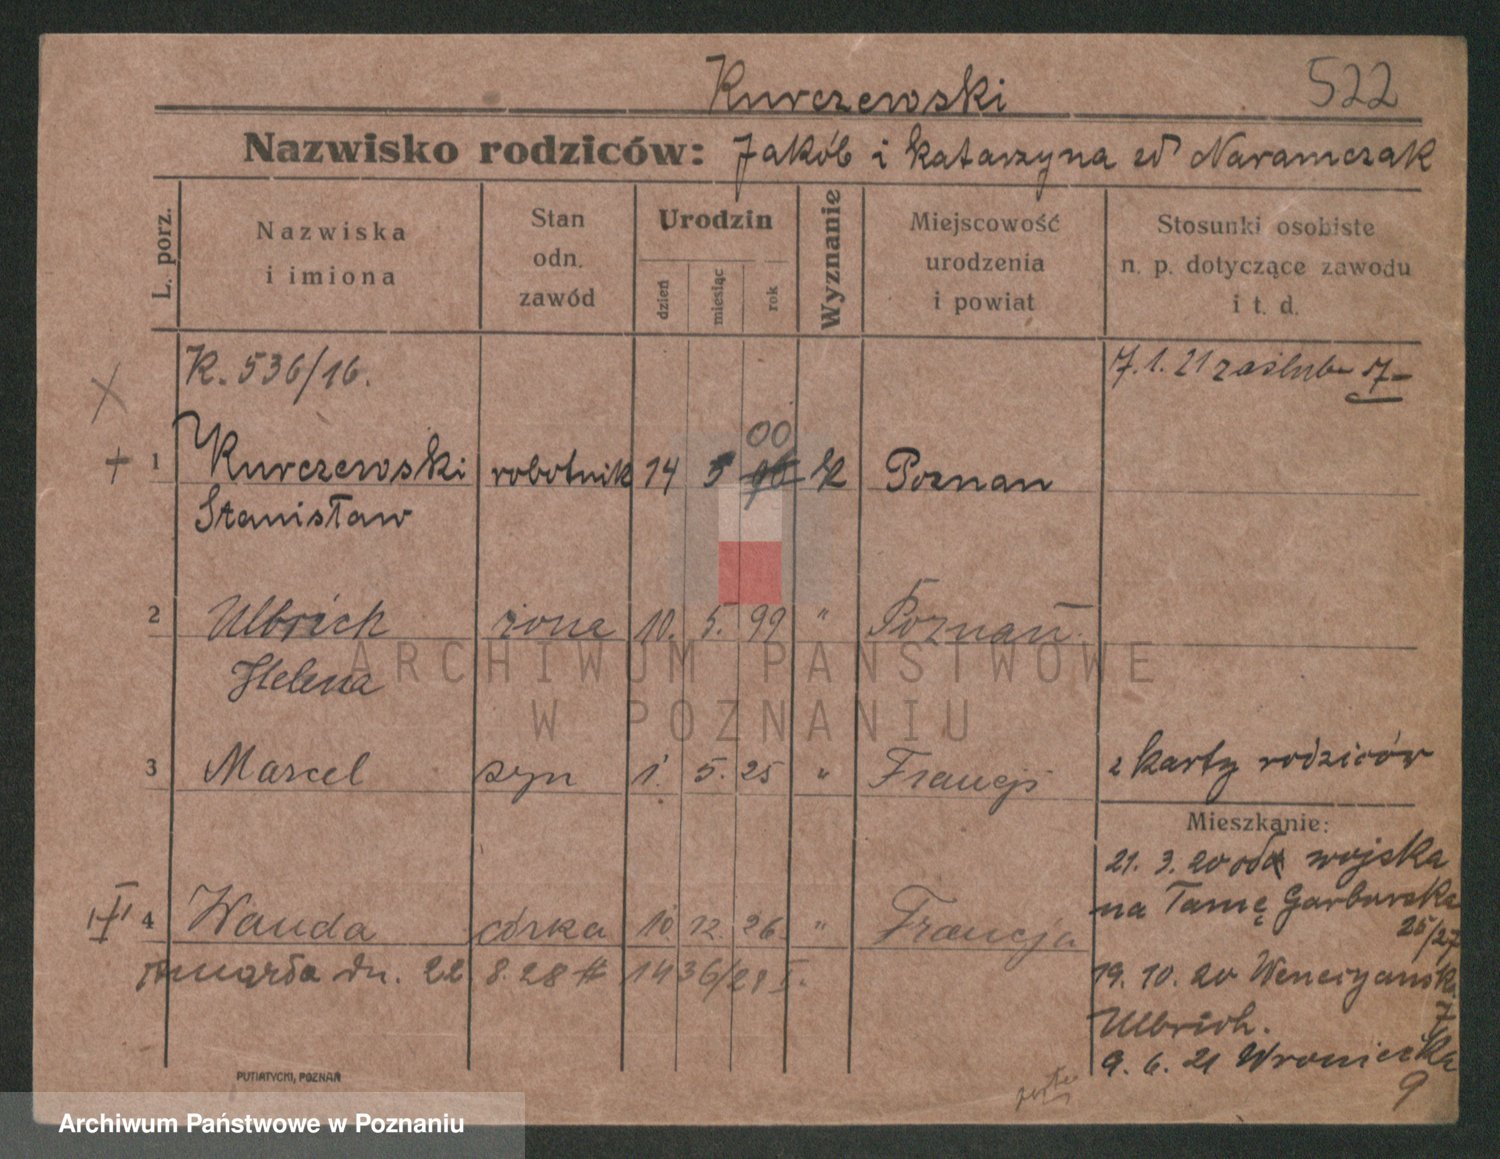 Kurczewski 522
Nazwisko rodziców: Jakób i Katarzyna zd Naramczak
L. porz.
Nazwiska
i imiona
Stan
odn.
zawód
Urodzin
dzień miesiąc rok
Wyznanie
Miejscowość
urodzenia
i powiat
Stosunki osobiste
n. p. dotyczące zawodu
i t. d.
K. 536/16. 7.1.21 zaślub
00
1 Kurczewski robotnik 14 5 96 K Poznan
Stanisław
2 Ulbrich żona 10. 5. 99 " Poznań
Helena
ARCHIWUM PAŃSTWOWE
W POZNANIU
3 Marcel syn 1. 5. 25 " Francji z karty rodziców
Mieszkanie:
21. 3. 20 od wojska
na Tamę Garbarska
25/27
4 Wanda córka 10. 12. 26. " Francja
umarła dn. 22. 8. 28 # 1436/28 I.
19. 10. 20 Wenecyanska
7
Ulbrich.
9. 6. 21 Wroniecka
9
PUTIATYCKI, POZNAŃ
Archiwum Państwowe w Poznaniu